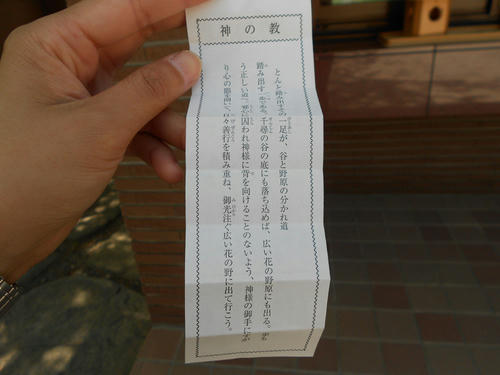 神の教
とんと踏み出すの一足が、谷と野原の分かれ道
踏み出す一歩である。千尋の谷の底にも落ち込めば、広い花の野原にも出る。
う正しい道、悪に囚われ神様に背を向けることのないよう、神様の御手に
り心の 日々善行を積み重ね、御光注ぐ広い花の野に出て行こう。